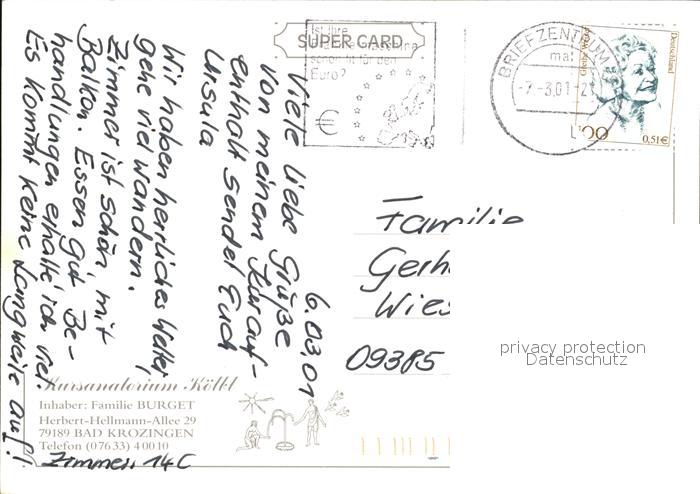 SUPER CARD
Ist Ihre
schon fit für den
Euro?
€
BRIEFZENTRUM
-7.-3.01-21
Grete Weiser
Deutschland
100
0,51€
6.03.01
Viele liebe Grüße
von meinem Kurauf-
enthalt sendet Euch
Ursula
Wir haben herrliches Wetter,
gehe viel wandern.
Zimmer ist schön mit
Balkon. Essen gut. Be-
handlungen erhalte ich viel.
Es kommt keine Langweile auf!
Familie
Gerh
Wies
09385
privacy protection
Datenschutz
Kursanatorium Kölbl
Inhaber: Familie BURGET
Herbert-Hellmann-Allee 29
79189 BAD KROZINGEN
Telefon (07633) 40010
Zimmer: 14C